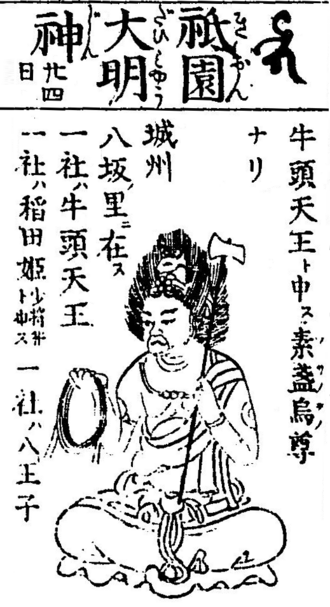 祇園
大明
神
廿四日
ぎをん
だいミやう
じん
牛頭天王ト申ス素盞烏尊
ナリ
城州
八坂ノ里ニ在ス
一社ハ牛頭天王
一社ハ稲田姫 少将井ト申ス 一社ハ八王子